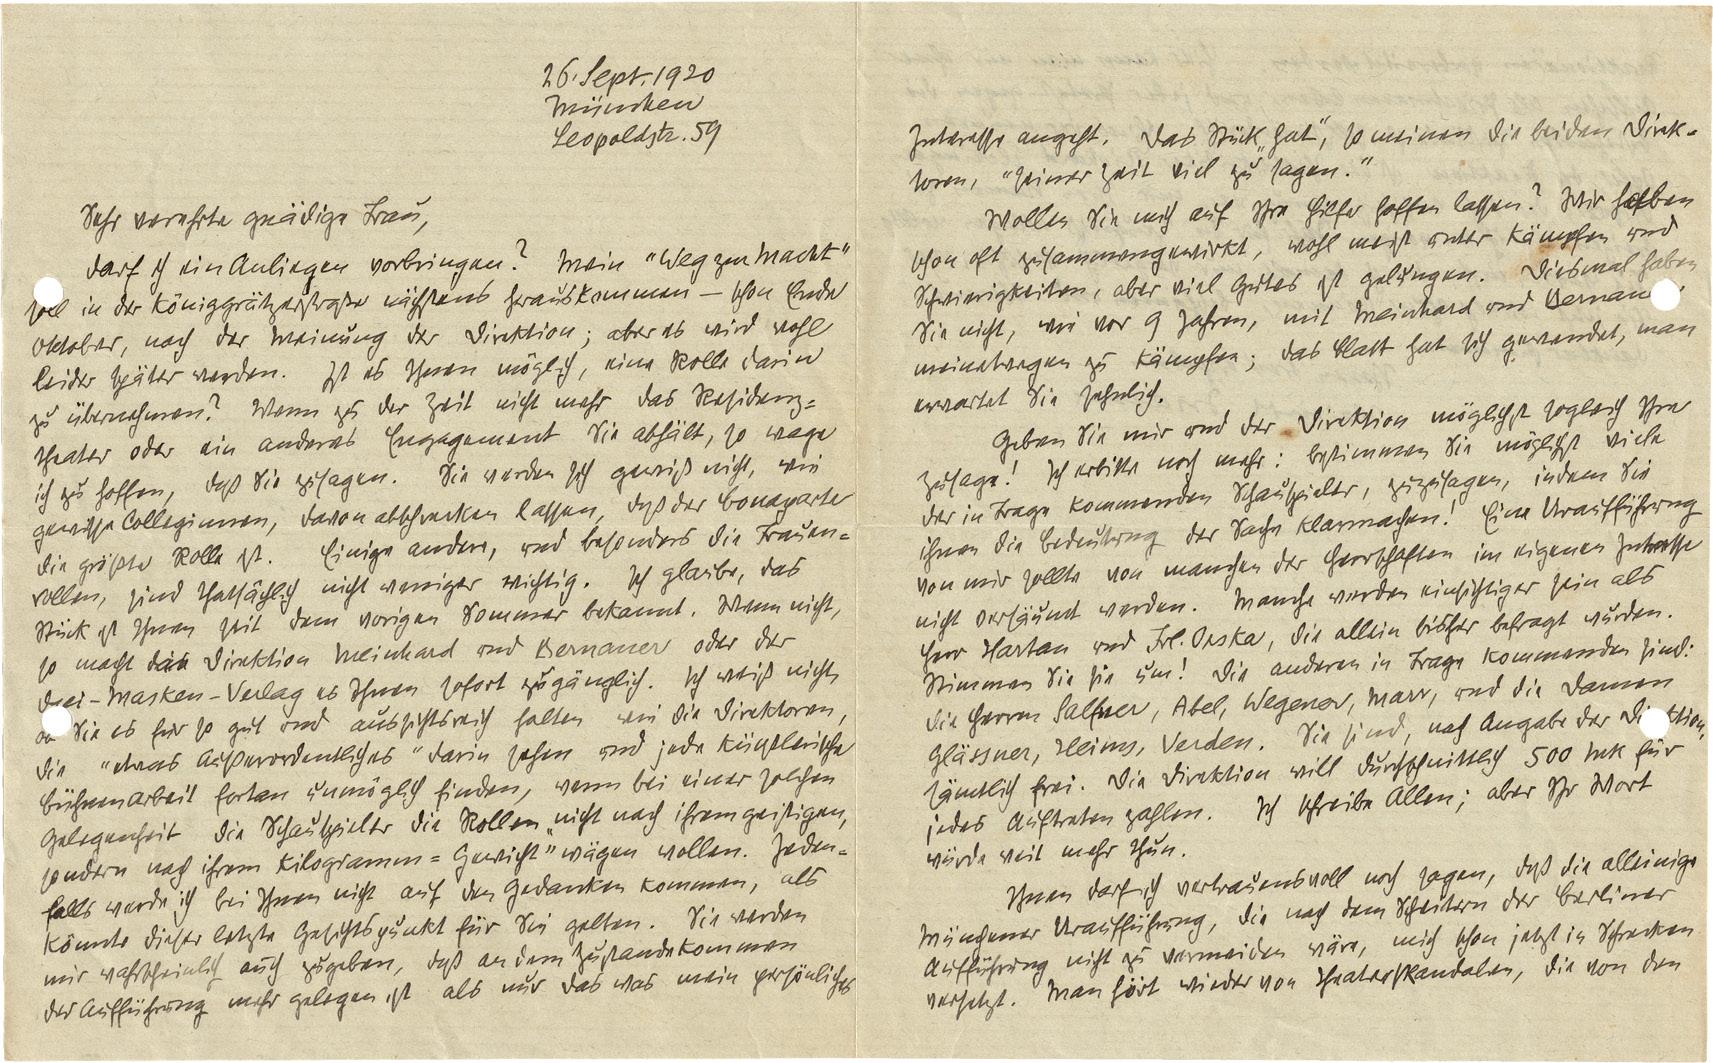 26. Sept. 1920
München
Leopoldstr. 59
Sehr verehrte gnädige Frau,
darf ich ein Anliegen vorbringen? Mein "Weg zur Macht"
soll in der Königgrätzerstraße nächstens herauskommen – schon Ende
Oktober, nach der Meinung der Direktion; aber es wird wohl
leider später werden. Ist es Ihnen möglich, eine Rolle darin
zu übernehmen? Wenn zu der Zeit nicht mehr das Residenz=
theater oder ein anderes Engagement Sie abhält, so wage
ich zu hoffen, daß Sie zusagen. Sie werden sich gewiß nicht, wie
gewisse Colleginnen, davon abschrecken lassen, daß der Bonaparte
die größte Rolle ist. Einige andere, und besonders die Frauen=
rollen, sind thatsächlich nicht weniger wichtig. Ich glaube, das
Stück ist Ihnen seit dem vorigen Sommer bekannt. Wenn nicht,
so macht die Direktion Meinhard und Bernauer oder der
Drei-Masken-Verlag es Ihnen sofort zugänglich. Ich weiß nicht,
ob Sie es für so gut und aussichtsreich halten wie die Direktoren,
die "etwas Außerordentliches" darin sehen und jede künstlerische
Bühnenarbeit fortan unmöglich finden, wenn bei einer solchen
Gelegenheit die Schauspieler die Rollen „nicht nach ihrem geistigen,
sondern nach ihrem Kilogramm=Gewicht" wägen wollen. Jeden=
falls werde ich bei Ihnen nicht auf den Gedanken kommen, als
könnte dieser letzte Gesichtspunkt für Sie gelten. Sie werden
mir wahrscheinlich auch zugeben, daß an dem Zustandekommen
der Aufführung mehr gelegen ist als nur das was mein persönliches
Interesse angeht. Das Stück „hat", so meinen die beiden Direk=
toren, "seiner Zeit viel zu sagen."
Wollen Sie mich auf Ihre Hilfe hoffen lassen? Wir haben
schon oft zusammengewirkt, wohl meist unter Kämpfen und
Schwierigkeiten, aber viel Gutes ist gelungen. Diesmal haben
Sie nicht, wie vor 9 Jahren, mit Meinhard und Bernauer
meinetwegen zu kämpfen; das Blatt hat sich gewendet, man
erwartet Sie sehnlich.
Geben Sie mir und der Direktion möglichst sogleich Ihre
Zusage! Ich erbitte noch mehr: bestimmen Sie möglichst viele
der in Frage kommenden Schauspieler, zuzusagen, indem Sie
ihnen die Bedeutung der Sache klarmachen! Eine Uraufführung
von mir sollte von manchen der Herrschaften im eigenen Interesse
nicht versäumt werden. Manche werden einsichtiger sein als
Herr Hartau und Frl. Orska, die allein bisher befragt wurden.
Stimmen Sie sie um! Die anderen in Frage kommenden sind:
die Herren Salfner, Abel, Wegener, Marr, und die Damen
Glässner, Heims, Verden. Sie sind, nach Angabe der Direktion,
sämtlich frei. Die Direktion will durchschnittlich 500 Mk für
jedes Auftreten zahlen. Ich schreibe Allen; aber Ihr Wort
würde weit mehr thun.
Ihnen darf ich vertrauensvoll noch sagen, daß die alleinige
Münchener Uraufführung, die nach dem Scheitern der Berliner
Aufführung nicht zu vermeiden wäre, mich schon jetzt in Schrecken
versetzt. Man hört wieder von Theaterskandalen, die von den